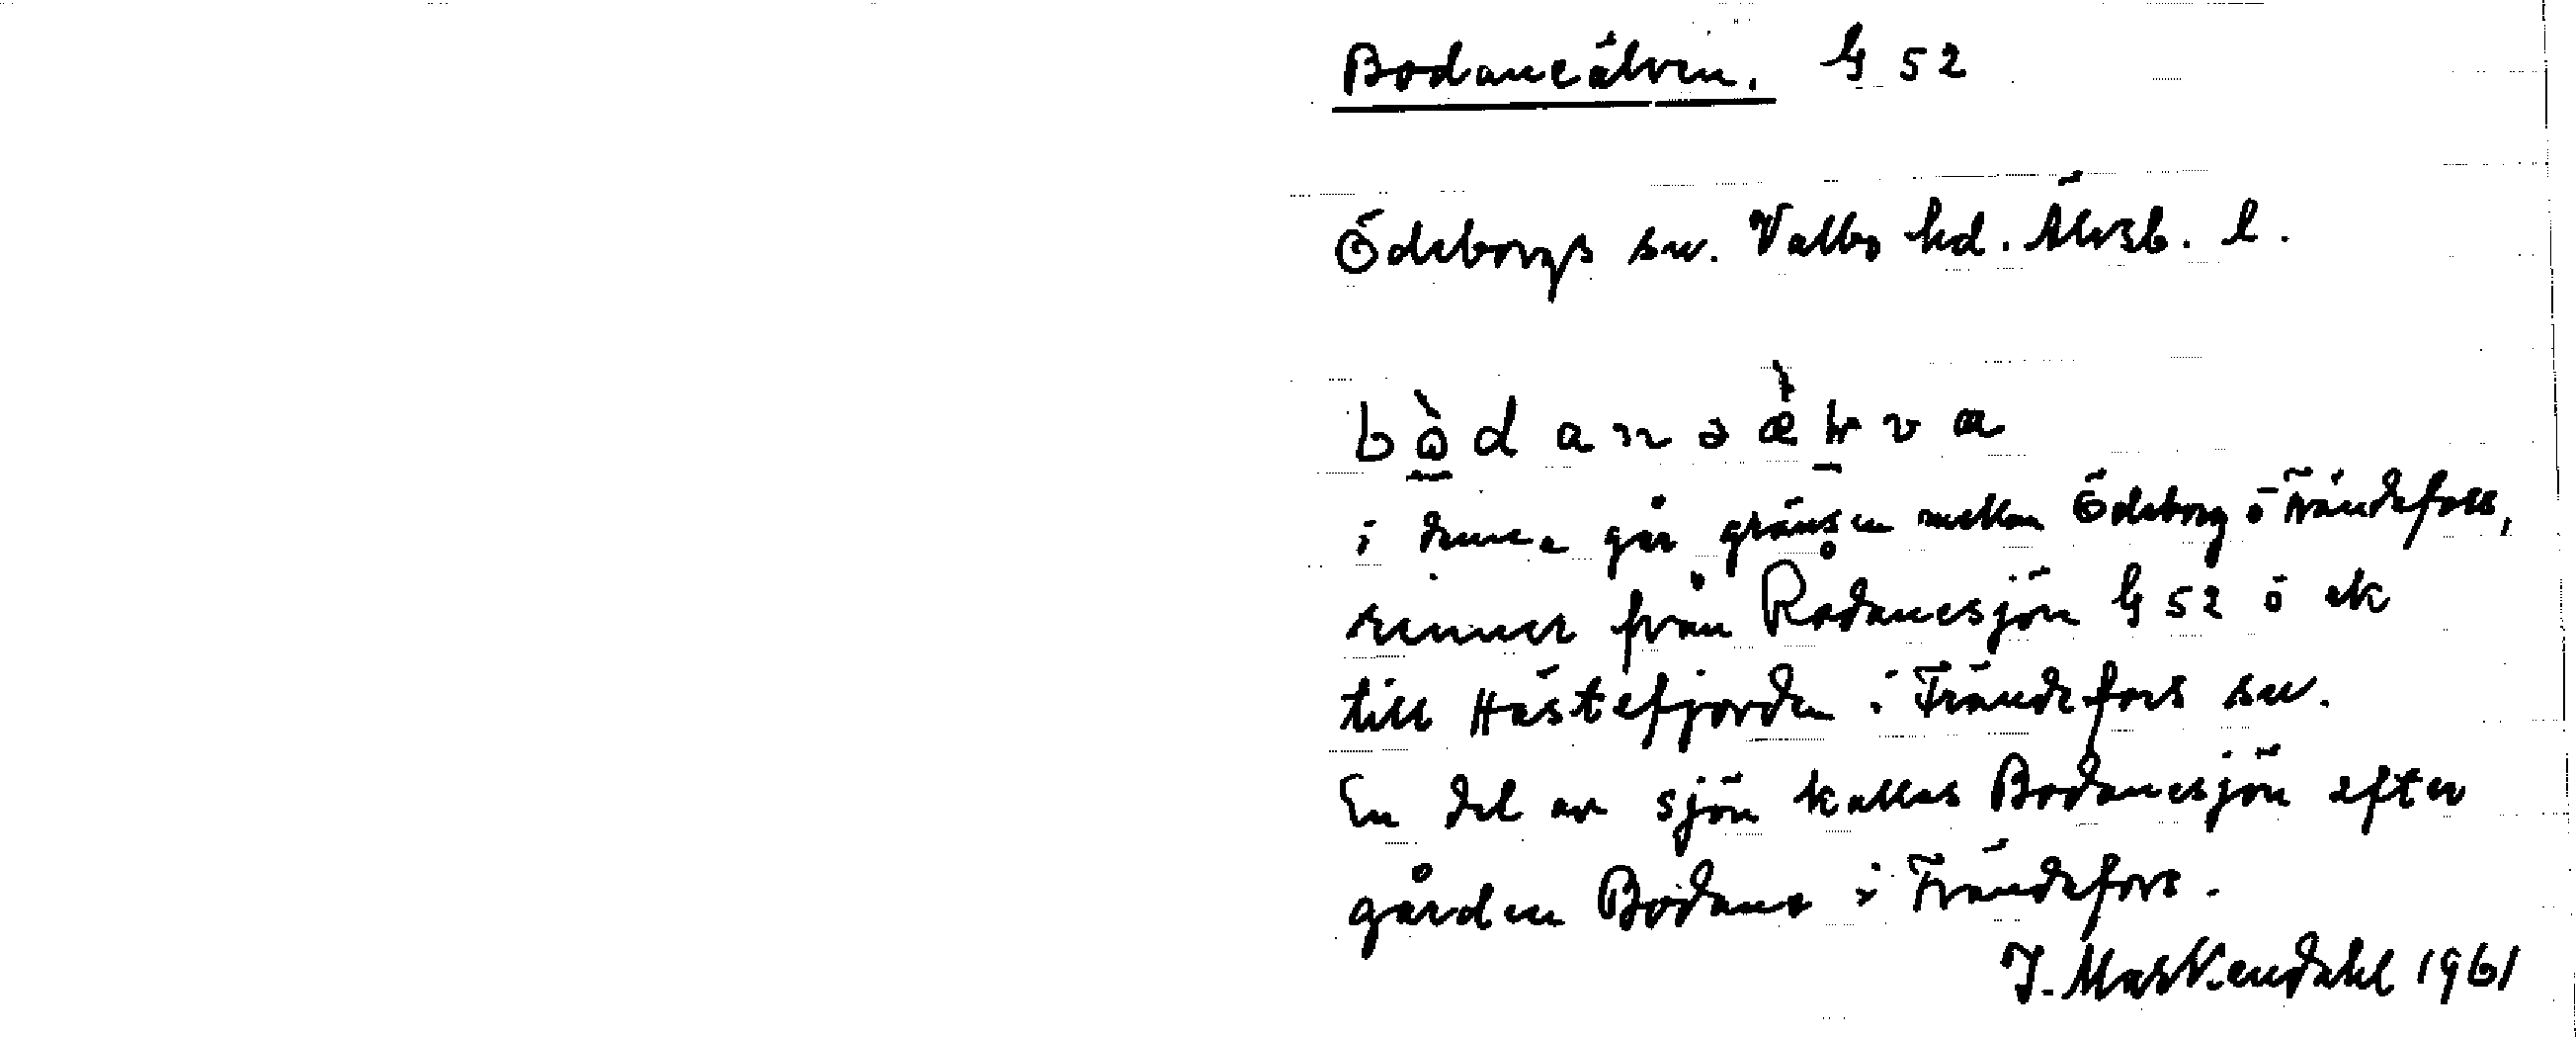 Bodaneälven. G 52
Ödeborgs sn. Valbo hd. Älvsb. l.
bò̱danəæ̀ḷva
i denna går gränsen mellan Ödeborg o Frändefors,
rinner från Rådanesjön G 52 o ek
till Hästefjorden i Frändefors sn.
En del av sjön kallas Bodanesjön efter
gården Bodane i Frändefors.
J. Markendahl 1961